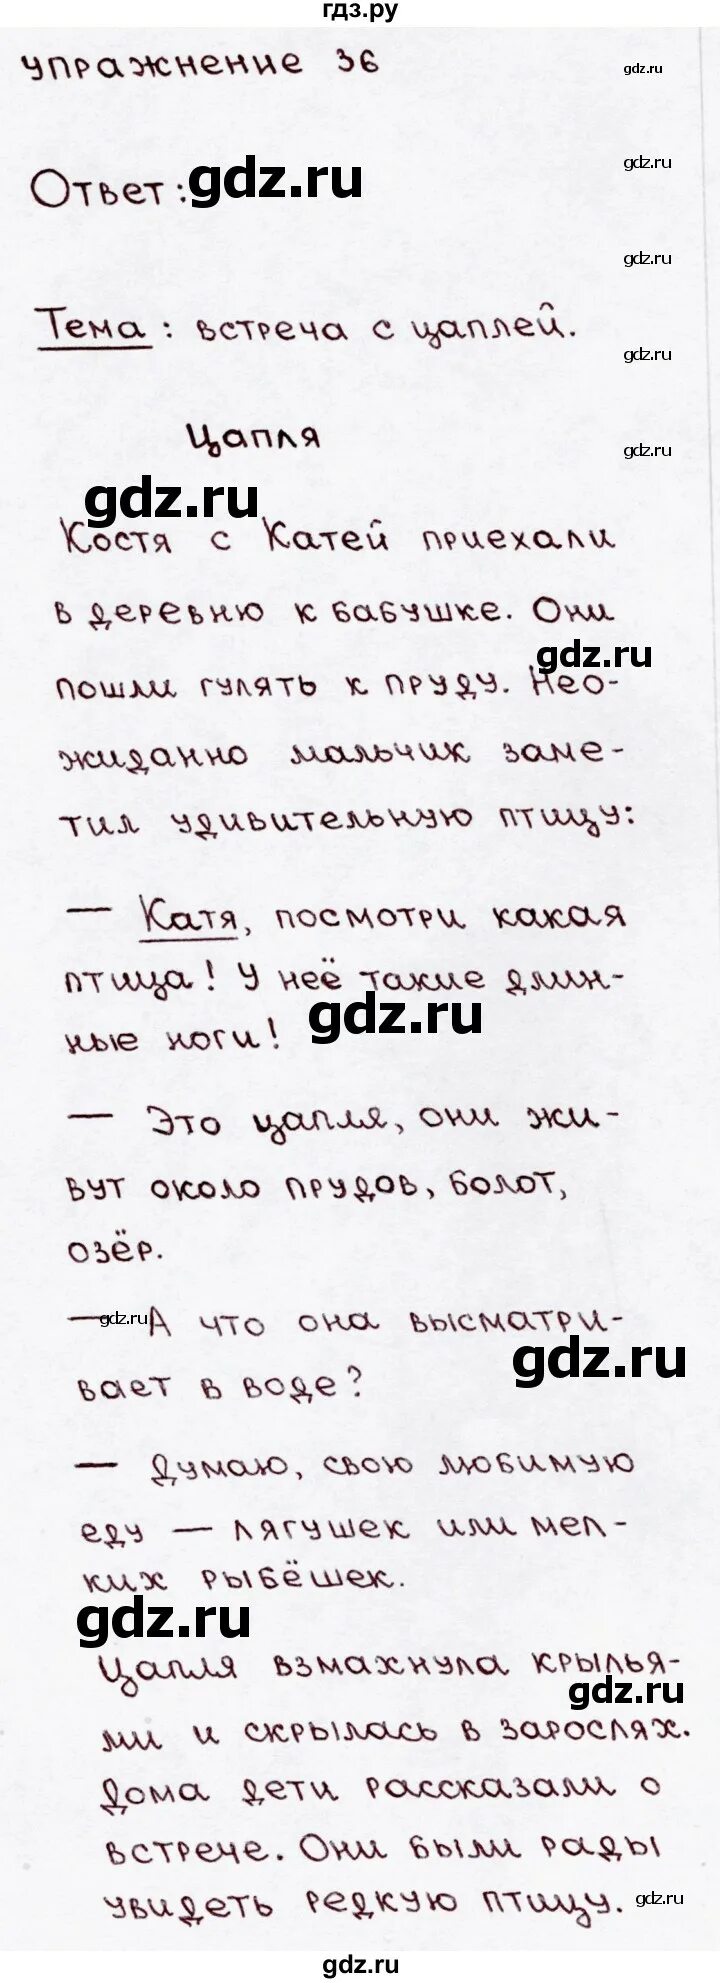 гдз.ру
упражнение 36
gdz.ru
Ответ: gdz.ru
gdz.ru
gdz.ru
Тема: встреча с цаплей.
gdz.ru
Цапля
gdz.ru
gdz.ru
Костя с Катей приехали
в деревню к бабушке. Они
gdz.ru
пошли гулять к пруду. Нео-
жиданно мальчик заме-
тил удивительную птицу:
— Катя, посмотри какая
птица! У неё такие длин-
gdz.ru
ные ноги!
— Это цапля, они жи-
вут около прудов, болот,
озёр.
gdz.ru
— А что она высматри-
gdz.ru
вает в воде?
— Думаю, свою любимую
еду — лягушек или мел-
ких рыбёшек.
gdz.ru
Цапля взмахнула крылья-
gdz.ru
ми и скрылась в зарослях.
Дома дети рассказали о
встрече. Они были рады
увидеть редкую птицу.
gdz.ru
gdz.ru